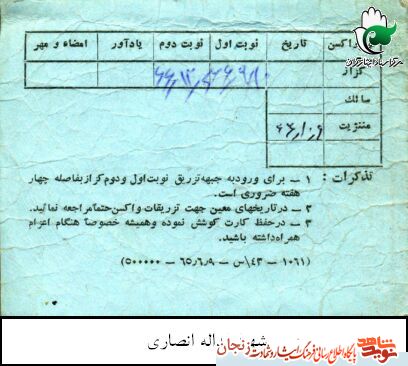 واکسن تاریخ نوبت اول نوبت دوم یادآور امضاء و مهر
کزاز
سالک
مننژیت ۶۶,۱۰,۹
تذکرات : ۱ ــ برای ورود به جبهه تزریق نوبت اول و دوم کزاز بفاصله چهار
هفته ضروری است.
۲ ــ در تاریخهای معین جهت تزریقات واکسن حتما مراجعه نمائید.
۳ ــ در حفظ کارت کوشش نموده و همیشه خصوصاً هنگام اعزام
همراه داشته باشید.
(۱۰۶۱ – ۴۳/س – ۶۵/۶/۹ – ۵۰۰۰۰۰)
انصاری
نوید شاهد
پایگاه اطلاع رسانی فرهنگ ایثار و شهادت زنجان